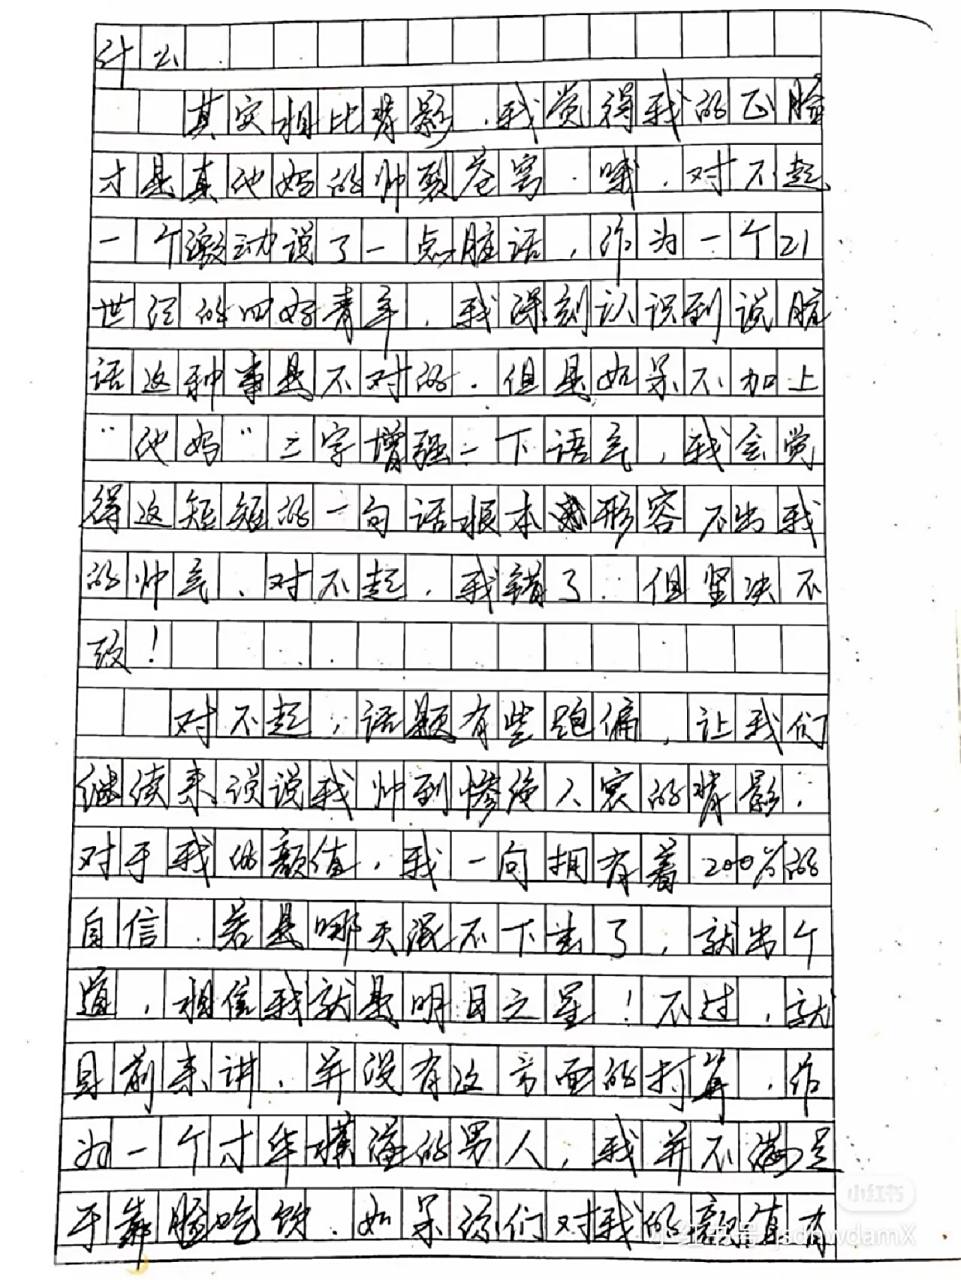 什么
其实相比背影，我觉得我的正脸
才是真他妈的帅裂苍穹。哦，对不起
一个激动说了一点脏话，作为一个21
世纪的四好青年，我深刻认识到说脏
话这种事是不对的。但是如果不加上
“他妈”二字增强一下语气，我会觉
得这短短的一句话根本形容不出我
的帅气、对不起，我错了。但坚决不
改！
对不起，话题有些跑偏，让我们
继续来说说我帅到惨绝人寰的背影。
对于我的颜值，我一向拥有着200分的
自信。若是哪天混不下去了，就出个
道，相信我就是明日之星！不过，就
目前来讲，并没有这方面的打算，作
为一个才华横溢的男人，我并不满足
于靠脸吃饭。如果你们对我的颜值有
小红书
小红书号